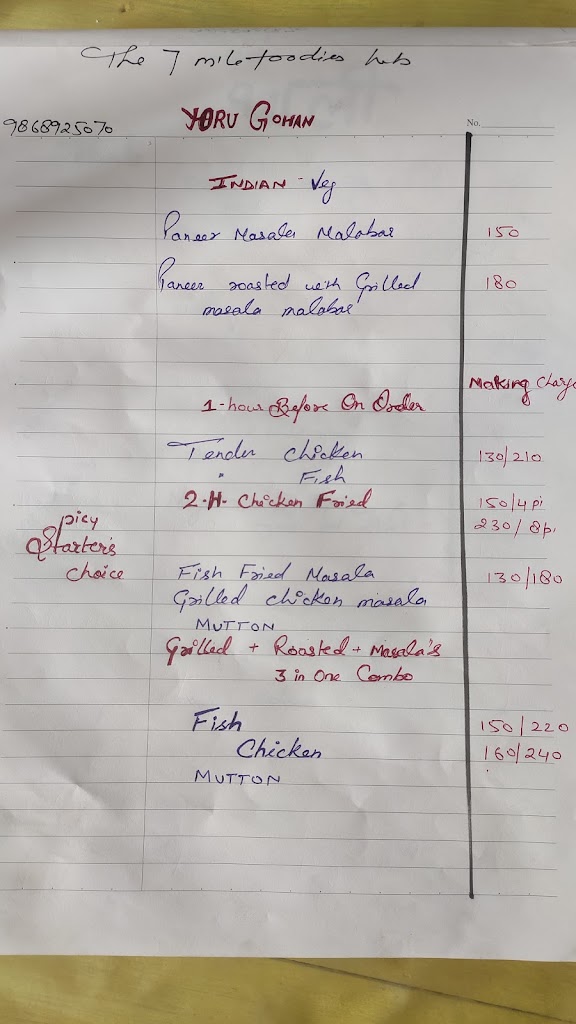 The 7 mile foodies hub
9868925070
YORU GOHAN
No.
INDIAN - Veg
Paneer Masala Malabar 150
Paneer roasted with Grilled 180
masala malabar
Making Charge
1-hour Before On Order
Tender Chicken 130/210
" Fish
2-H- Chicken Fried 150/4 pi
230/8p.
Spicy
Starter's
choice
Fish Fried Masala 130/180
Grilled chicken masala
MUTTON
Grilled + Roasted + Masala's
3 in One Combo
Fish 150/220
Chicken 160/240
MUTTON